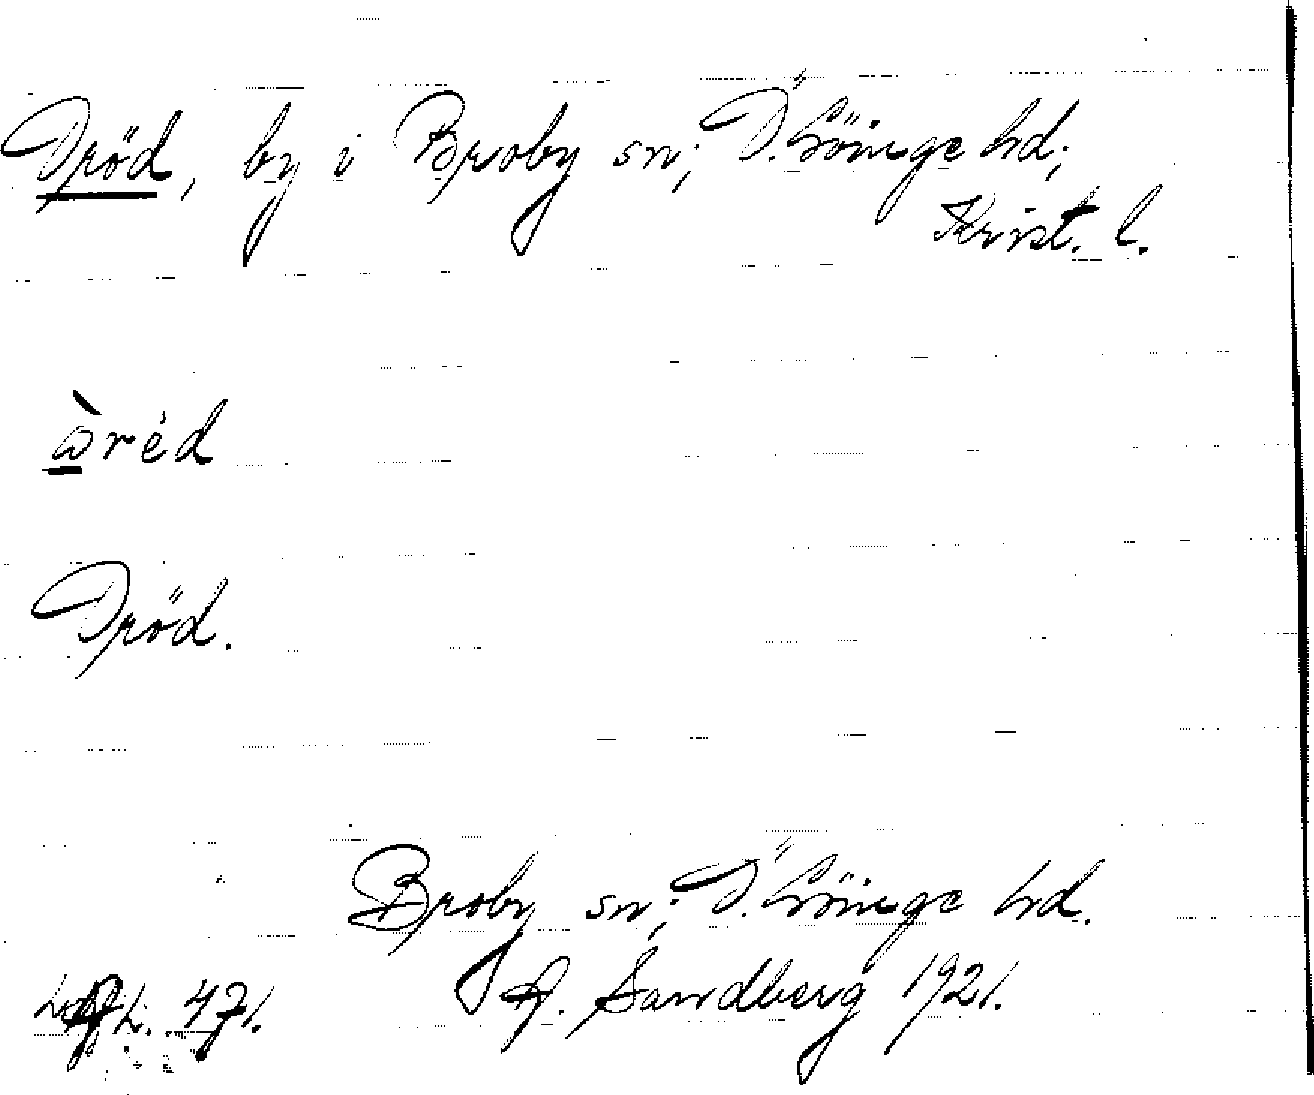 Oröd, by i Broby sn, Ö. Göinge hd,
Krist. l.
ὼ̲réd
Oröd.
Broby sn, Ö. Göinge hd.
471. A. Sandberg 1921.